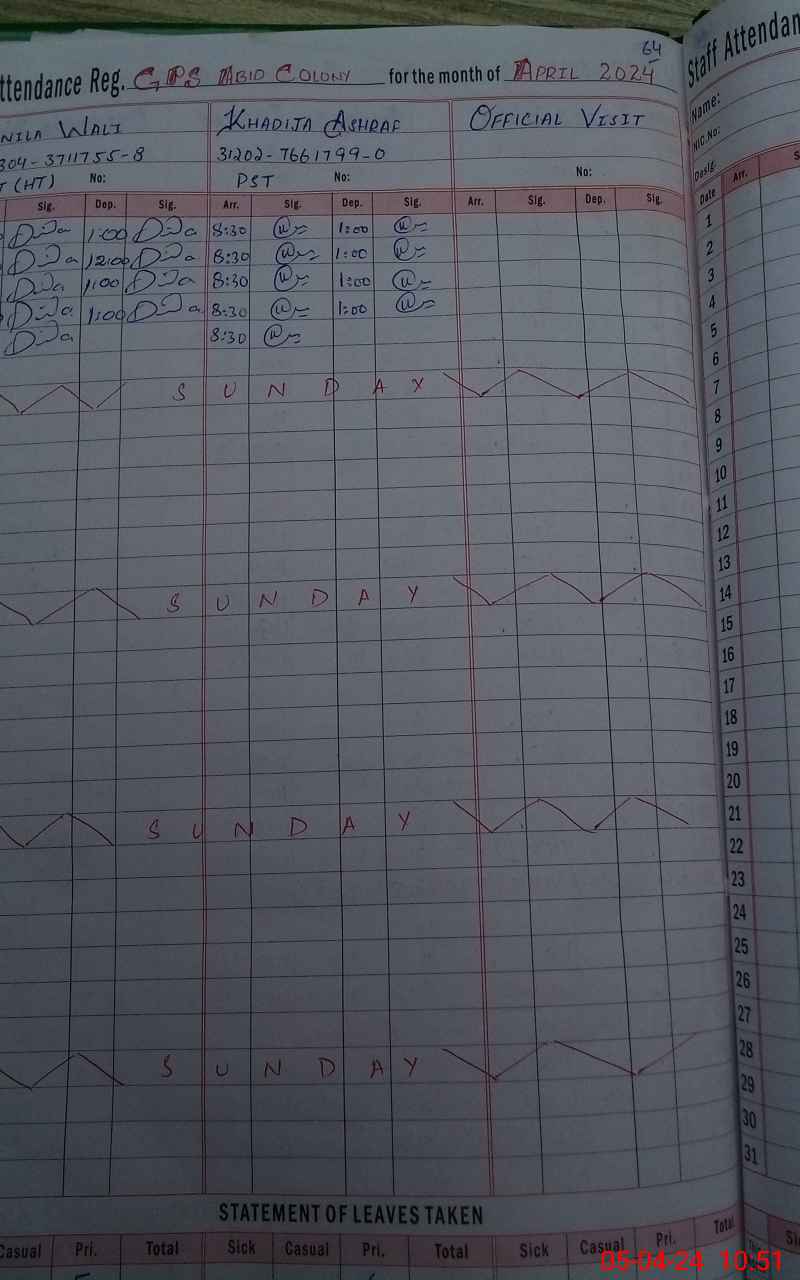 64
ttendance Reg. GPS ABID COLONY for the month of APRIL 2024
Staff Attendan
NILA WALI KHADIJA ASHRAF OFFICIAL VISIT
Name:
304-3711755-8 31202-7661799-0
NIC.No:
T (HT) No: PST No: No:
Desig.
Sig. Dep. Sig. Arr. Sig. Dep. Sig. Arr. Sig. Dep. Sig. Date Arr. S
1:00 8:30 1:00 1
12:00 8:30 1:00 2
1:00 8:30 1:00 3
1:00 8:30 1:00 4
8:30 5
6
SUNDAY 7
8
9
10
11
12
13
SUNDAY 14
15
16
17
18
19
20
SUNDAY 21
22
23
24
25
26
27
SUNDAY 28
29
30
31
STATEMENT OF LEAVES TAKEN
Casual Pri. Total Sick Casual Pri. Total Sick Casual Pri. Total Si
05-04-24 10:51